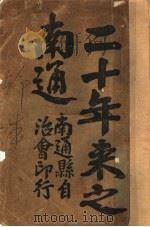 二十年来之
南通
南通縣自
治會印行